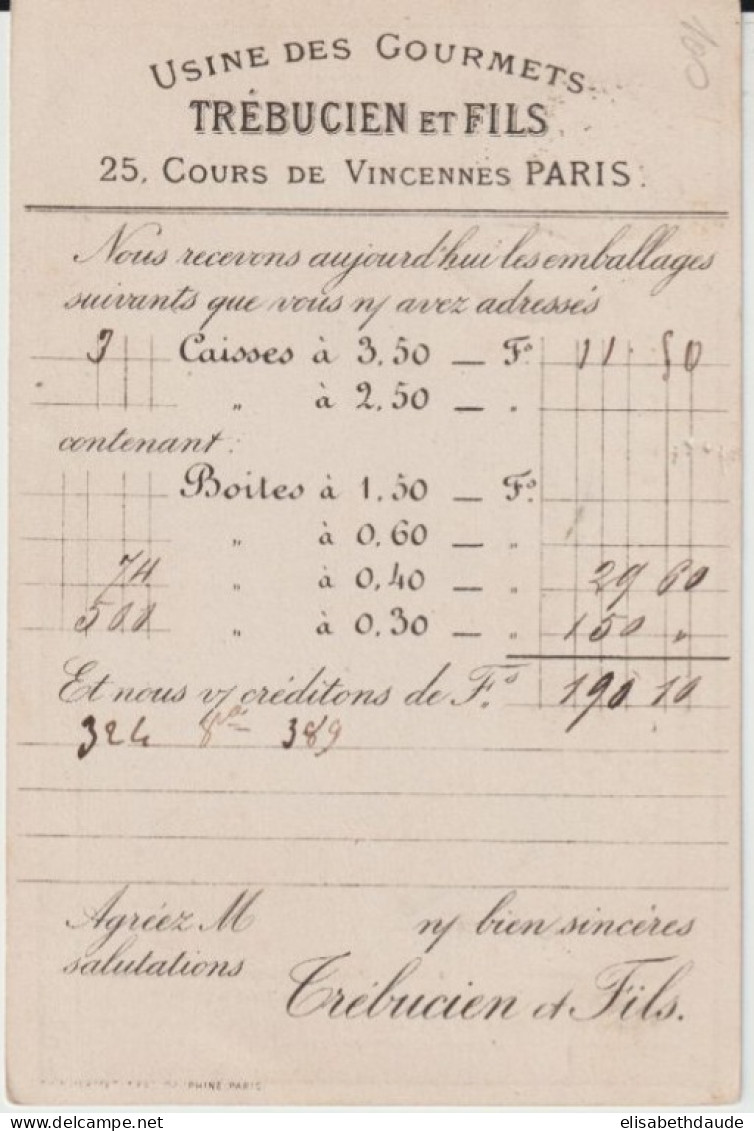 100
USINE DES GOURMETS
TRÉBUCIEN ET FILS
25, COURS DE VINCENNES PARIS.
Nous recevons aujourd'hui les emballages
suivants que vous n/ avez adressés
3 Caisses à 3.50 — Fs. 11 50
" à 2.50 — "
contenant:
Boites à 1.50 — Fs.
" à 0.60 — "
74 " à 0.40 — " 29 60
500 " à 0.30 — " 150 "
Et nous v/ créditons de Fs. 190 10
324 389
Agréez M n/ bien sincères
salutations
Trébucien et Fils.
PHINE PARIS
elisabethdaude